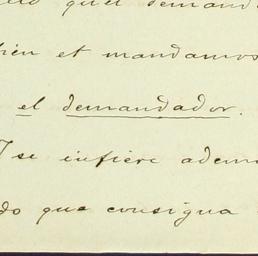 quel demand
bien et mandamos
el demandador.
I se infiere adem
do que consigna